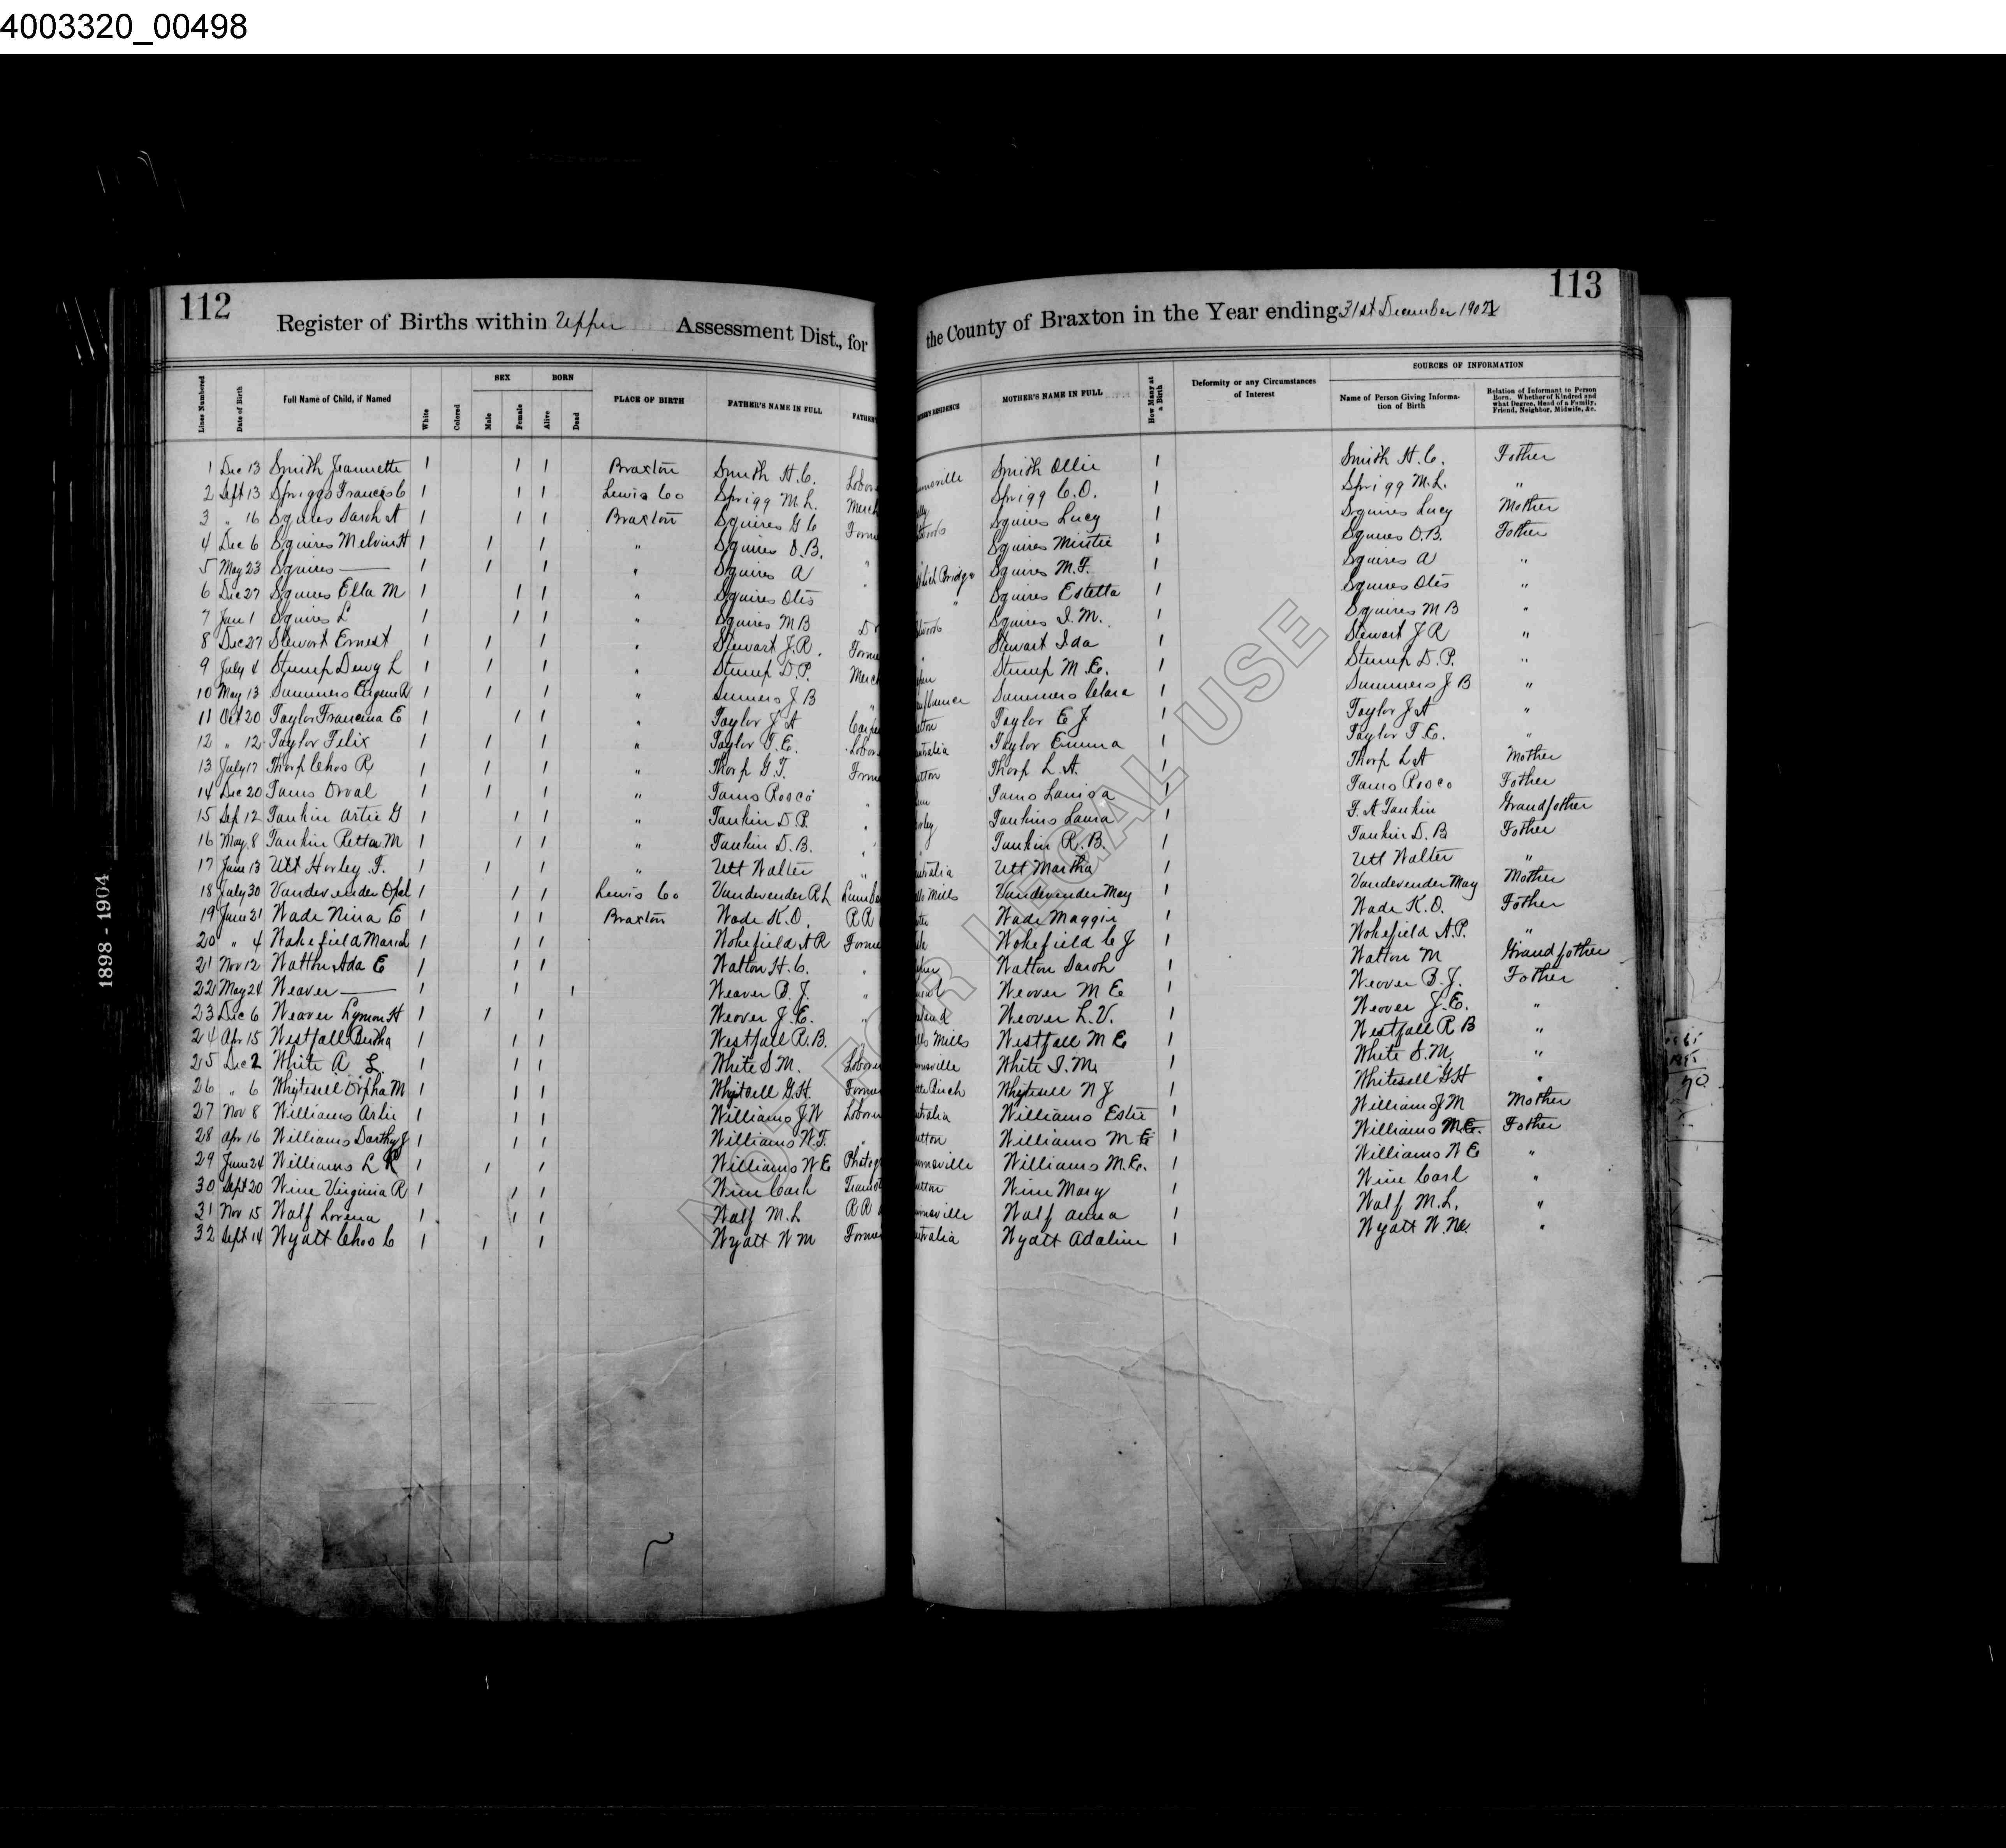 4003320_00498
112
113
Register of Births within Upper Assessment Dist., for the County of Braxton in the Year ending 31st December 1902
Lines Numbered Date of Birth Full Name of Child, if Named White Colored SEX Male Female BORN Alive Dead PLACE OF BIRTH FATHER'S NAME IN FULL FATHER'S RESIDENCE MOTHER'S NAME IN FULL How Many at a Birth Deformity or any Circumstances of Interest SOURCES OF INFORMATION Name of Person Giving Information of Birth Relation of Informant to Person Born. Whether of Kindred and what Degree, Head of a Family, Friend, Neighbor, Midwife, &c.
1 Dec 13 Smith Jeannette 1 1 1 Braxton Smith H. C. Smith Ollie 1 Smith H. C. Father
2 Sept 13 Spriggs Francis C 1 1 1 Lewis Co Sprigg M. L. Merch Sprigg C. O. 1 Sprigg M. L. "
3 " 16 Squires Sarah A 1 1 1 Braxton Squires G C Squires Lucy 1 Squires Lucy Mother
4 Dec 6 Squires Melvin H 1 1 1 " Squires O. B. Squires Mintie 1 Squires O. B. Father
5 May 23 Squires — 1 1 1 " Squires A " Bridge Squires M. F. 1 Squires A "
6 Dec 27 Squires Ella M 1 1 1 " Squires Otis " " Squires Estetta 1 Squires Otis "
7 Jan 1 Squires L 1 1 1 " Squires M B Squires I. M. 1 Squires M B "
8 Dec 27 Stewart Ernest 1 1 1 " Stewart J. R. Stewart Ida 1 Stewart J R "
9 July 4 Stump Dewy L 1 1 1 " Stump D. P. Merc Stump M. E. 1 Stump D. P. "
10 May 13 Summers Eugene R 1 1 1 " Summers J B " Summers Clara 1 Summers J B "
11 Oct 20 Taylor Francina E 1 1 1 " Taylor J A Taylor E J 1 Taylor J A "
12 " 12 Taylor Felix 1 1 1 " Taylor T. E. Taylor Emma 1 Taylor T. E. "
13 July 17 Thorp Chas R 1 1 1 " Thorp G. T. Thorp L. A. 1 Thorp L A Mother
14 Dec 20 Tams Orval 1 1 1 " Tams Rosco " Tams Lanisa 1 Tams Rosco Father
15 Sep 12 Tankin Artie G 1 1 1 " Tankin D. P. " Tankins Laura 1 F. A Tankin Grandfather
16 May 8 Tankin Retta M 1 1 1 " Tankin D. B. " Tankin R. B. 1 Tankin D. B Father
17 June 13 Utt Horley F. 1 1 1 " Utt Walter " Utt Martha 1 Utt Walter "
18 July 30 Vandevender Opel 1 1 1 Lewis Co Vandevender R L Mills Vandevender May 1 Vandevender May Mother
19 June 21 Wade Nina E 1 1 1 Braxton Wade K. O. R R Wade Maggie 1 Wade K. O. Father
20 " 4 Wakefield Maria L 1 1 1 Wakefield A R Wakefield C J 1 Wakefield A. P. "
21 Nov 12 Watton Ada E 1 1 1 Watton H. C. " Watton Sarah 1 Watton M Grandfather
22 May 24 Weaver — 1 1 1 Weaver B. J. " Weaver M E 1 Weaver B. J. Father
23 Dec 6 Weaver Lymon H 1 1 1 Weaver J. E. " Weaver L. V. 1 Weaver J. E. "
24 Apr 15 Westfall Bertha 1 1 1 Westfall R. B. Mills Westfall M E 1 Westfall R B "
25 Dec 2 White A L 1 1 1 White S M. White I. M. 1 White S. M. "
26 " 6 Whitesell Orpha M 1 1 1 Whitsell G. H. Whitesell N J 1 Whitesell G H "
27 Nov 8 Williams Artie 1 1 1 Williams J. W Williams Estie 1 Williams J M Mother
28 Apr 16 Williams Dorthy J 1 1 1 Williams W. T. " Williams M E 1 Williams M. E. Father
29 June 24 Williams L R 1 1 1 Williams W E Williams M. E. 1 Williams W E "
30 Sept 20 Wine Virginia R 1 1 1 Wine Carl Wine Mary 1 Wine Carl "
31 Nov 15 Wolf Lorena 1 1 1 Wolf M. L R R Wolf Anna 1 Wolf M. L. "
32 Sept 14 Wyatt Chas C 1 1 1 Wyatt W M Wyatt Adaline 1 Wyatt W. M. "
1898 - 1904
NOT FOR LEGAL USE